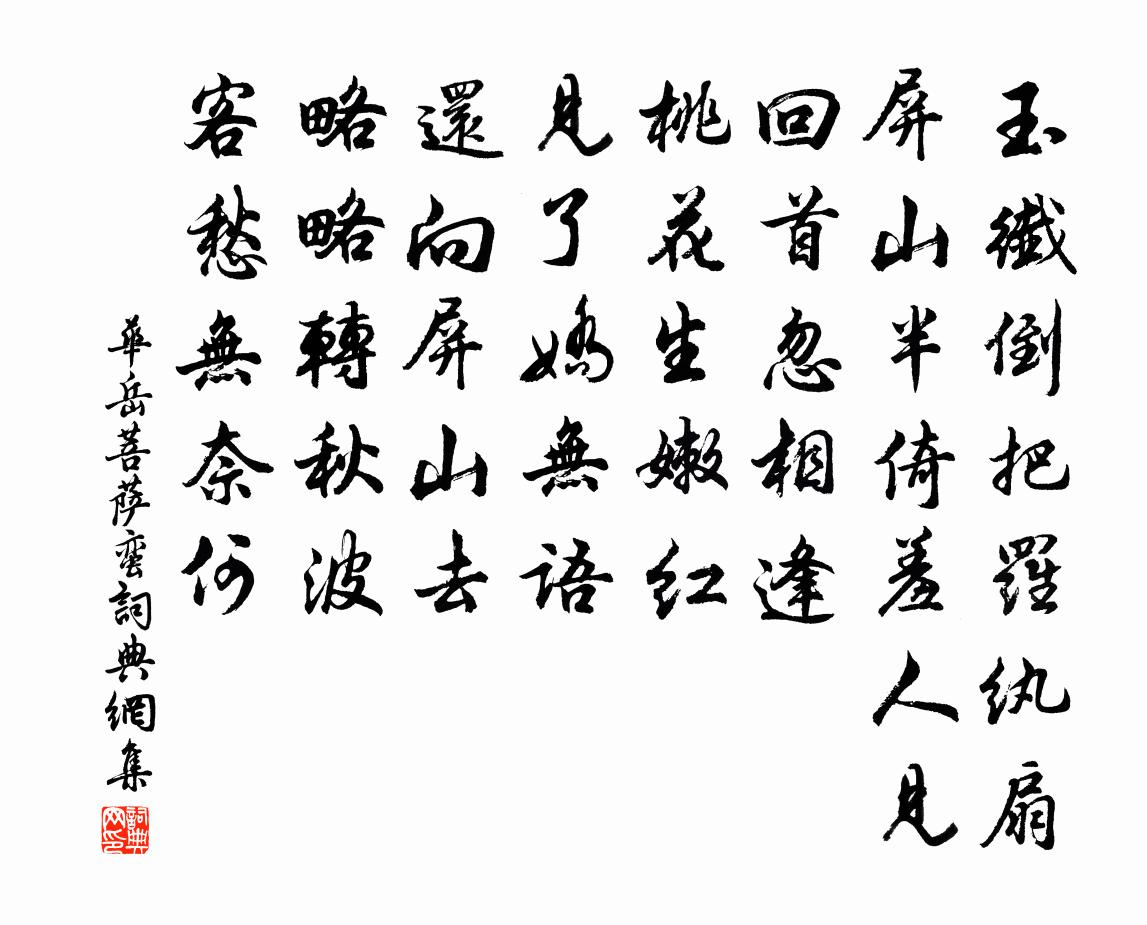 玉纖倒把羅紈扇
屏山半倚羞人見
回首忽相逢
桃花生嫩紅
見了嬌無語
還向屏山去
略略轉秋波
客愁無奈何
華岳菩薩蠻詞典網集
詞典網印